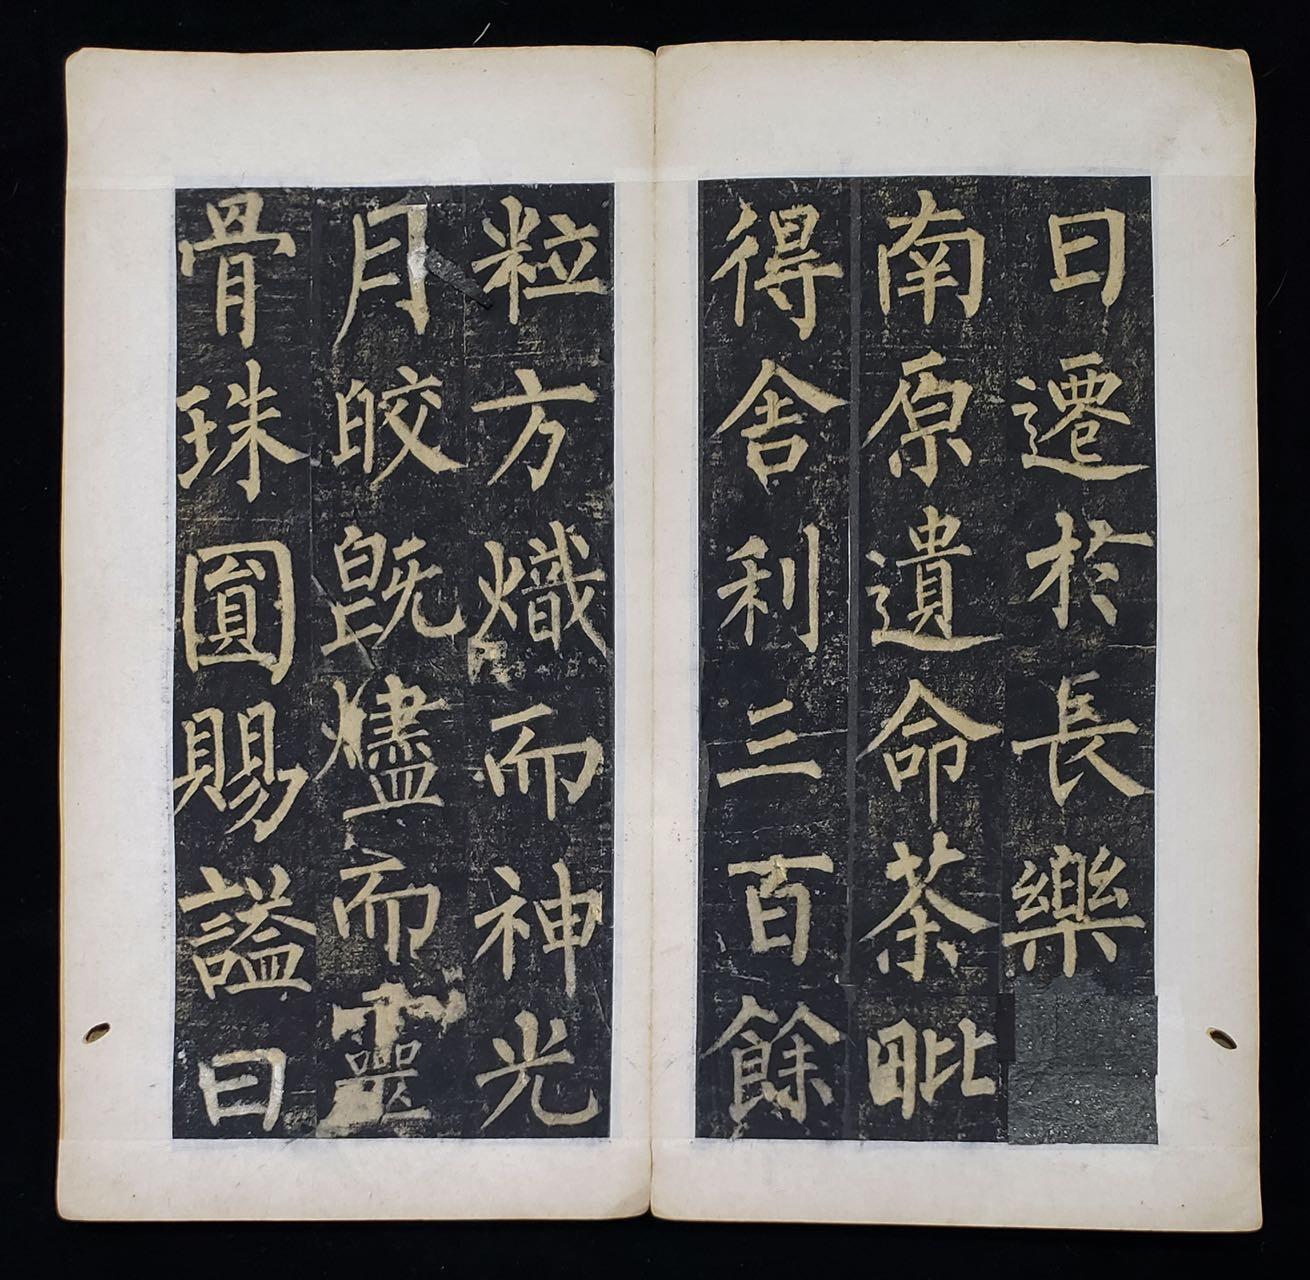 日遷於長樂
南原遺命荼毗
得舍利三百餘
粒方熾而神光
月皎既燼而靈
骨珠圓賜謚曰